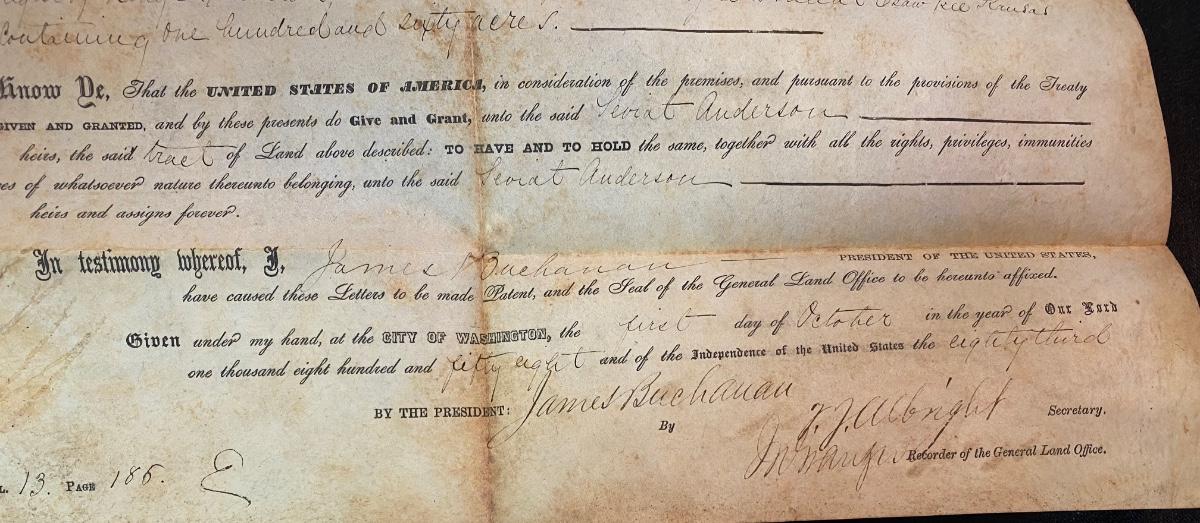 Containing one hundred and sixty acres.
Know Ye, That the UNITED STATES OF AMERICA, in consideration of the premises, and pursuant to the provisions of the Treaty
GIVEN AND GRANTED, and by these presents do Give and Grant, unto the said Leviat Anderson
heirs, the said tract of Land above described: TO HAVE AND TO HOLD the same, together with all the rights, privileges, immunities
of whatsoever nature thereunto belonging, unto the said Leviat Anderson
heirs and assigns forever.
In testimony whereof, I, James Buchanan PRESIDENT OF THE UNITED STATES,
have caused these Letters to be made Patent, and the Seal of the General Land Office to be hereunto affixed.
Given under my hand, at the CITY OF WASHINGTON, the first day of October in the year of Our Lord
one thousand eight hundred and fifty eight and of the Independence of the United States the eighty third
BY THE PRESIDENT: James Buchanan
By T. J. Albright Secretary.
Recorder of the General Land Office.
13. PAGE 185.